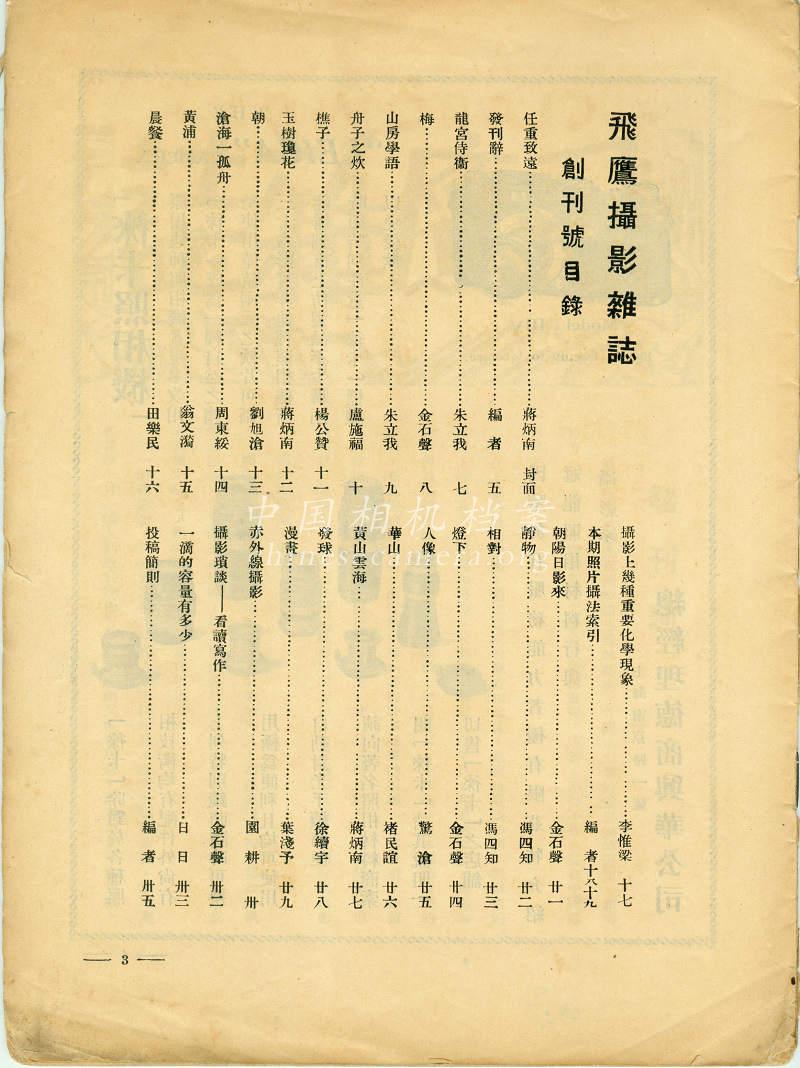 飛鷹攝影雜誌
創刊號目錄
任重致遠 蔣炳南 封面
發刊辭 編者 五
龍宮侍衞 朱立我 七
梅 金石聲 八
山房學語 朱立我 九
舟子之炊 盧施福 十
樵子 楊公贊 十一
玉樹瓊花 蔣炳南 十二
朝 劉旭滄 十三
滄海一孤舟 周東綏 十四
黃浦 翁文漪 十五
晨餐 田樂民 十六
攝影上幾種重要化學現象 李惟梁 十七
本期照片攝法索引 編者 十八十九
朝陽日影來 金石聲 廿一
靜物 馮四知 廿二
相對 馮四知 廿三
燈下 金石聲 廿四
人像 驚滄 廿五
華山 褚民誼 廿六
黃山雲海 蔣炳南 廿七
發球 徐續宇 廿八
漫畫 葉淺予 廿九
赤外線攝影 園耕 卅
攝影瑣談——看讀寫作 金石聲 卅二
一滴的容量有多少 日日 卅三
投稿簡則 編者 卅五
— 3 —
中国相机档案
chinesecamera.org